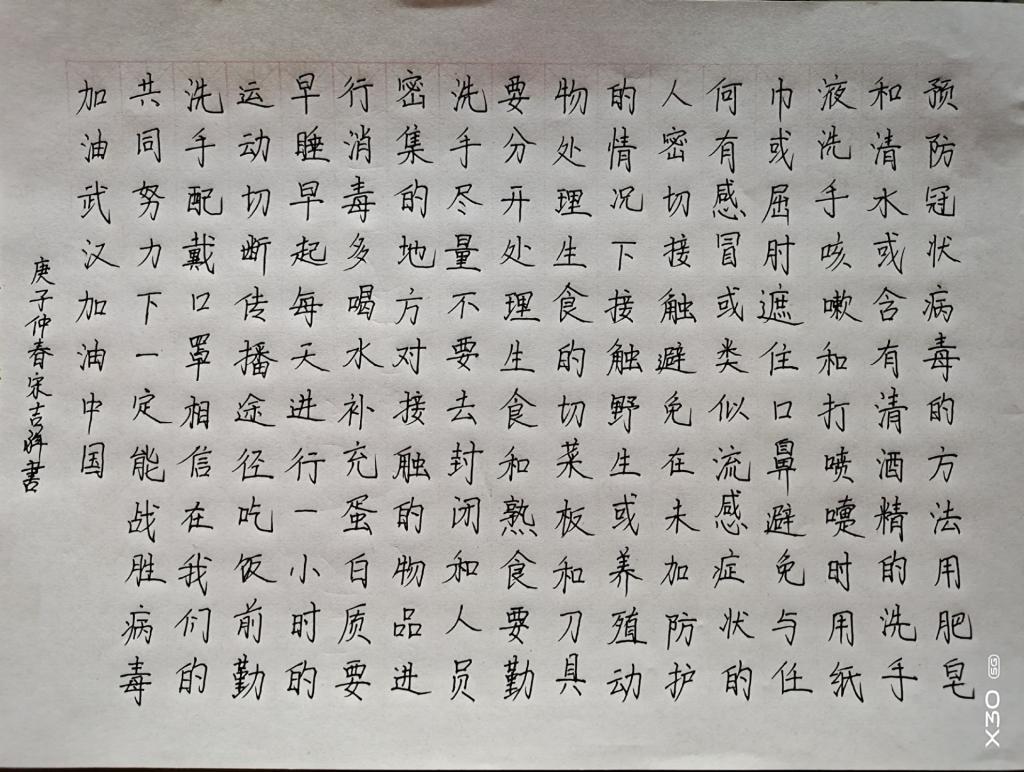 预防冠状病毒的方法用肥皂
和清水或含有清酒精的洗手
液洗手咳嗽和打喷嚏时用纸
巾或屈肘遮住口鼻避免与任
何有感冒或类似流感症状的
人密切接触避免在未加防护
的情况下接触野生或养殖动
物处理生食的切菜板和刀具
要分开处理生食和熟食要勤
洗手尽量不要去封闭和人员
密集的地方对接触的物品进
行消毒多喝水补充蛋白质要
早睡早起每天进行一小时的
运动切断传播途径吃饭前勤
洗手配戴口罩相信在我们的
共同努力下一定能战胜病毒
加油武汉加油中国
庚子仲春宋吉祥书
X30 5G